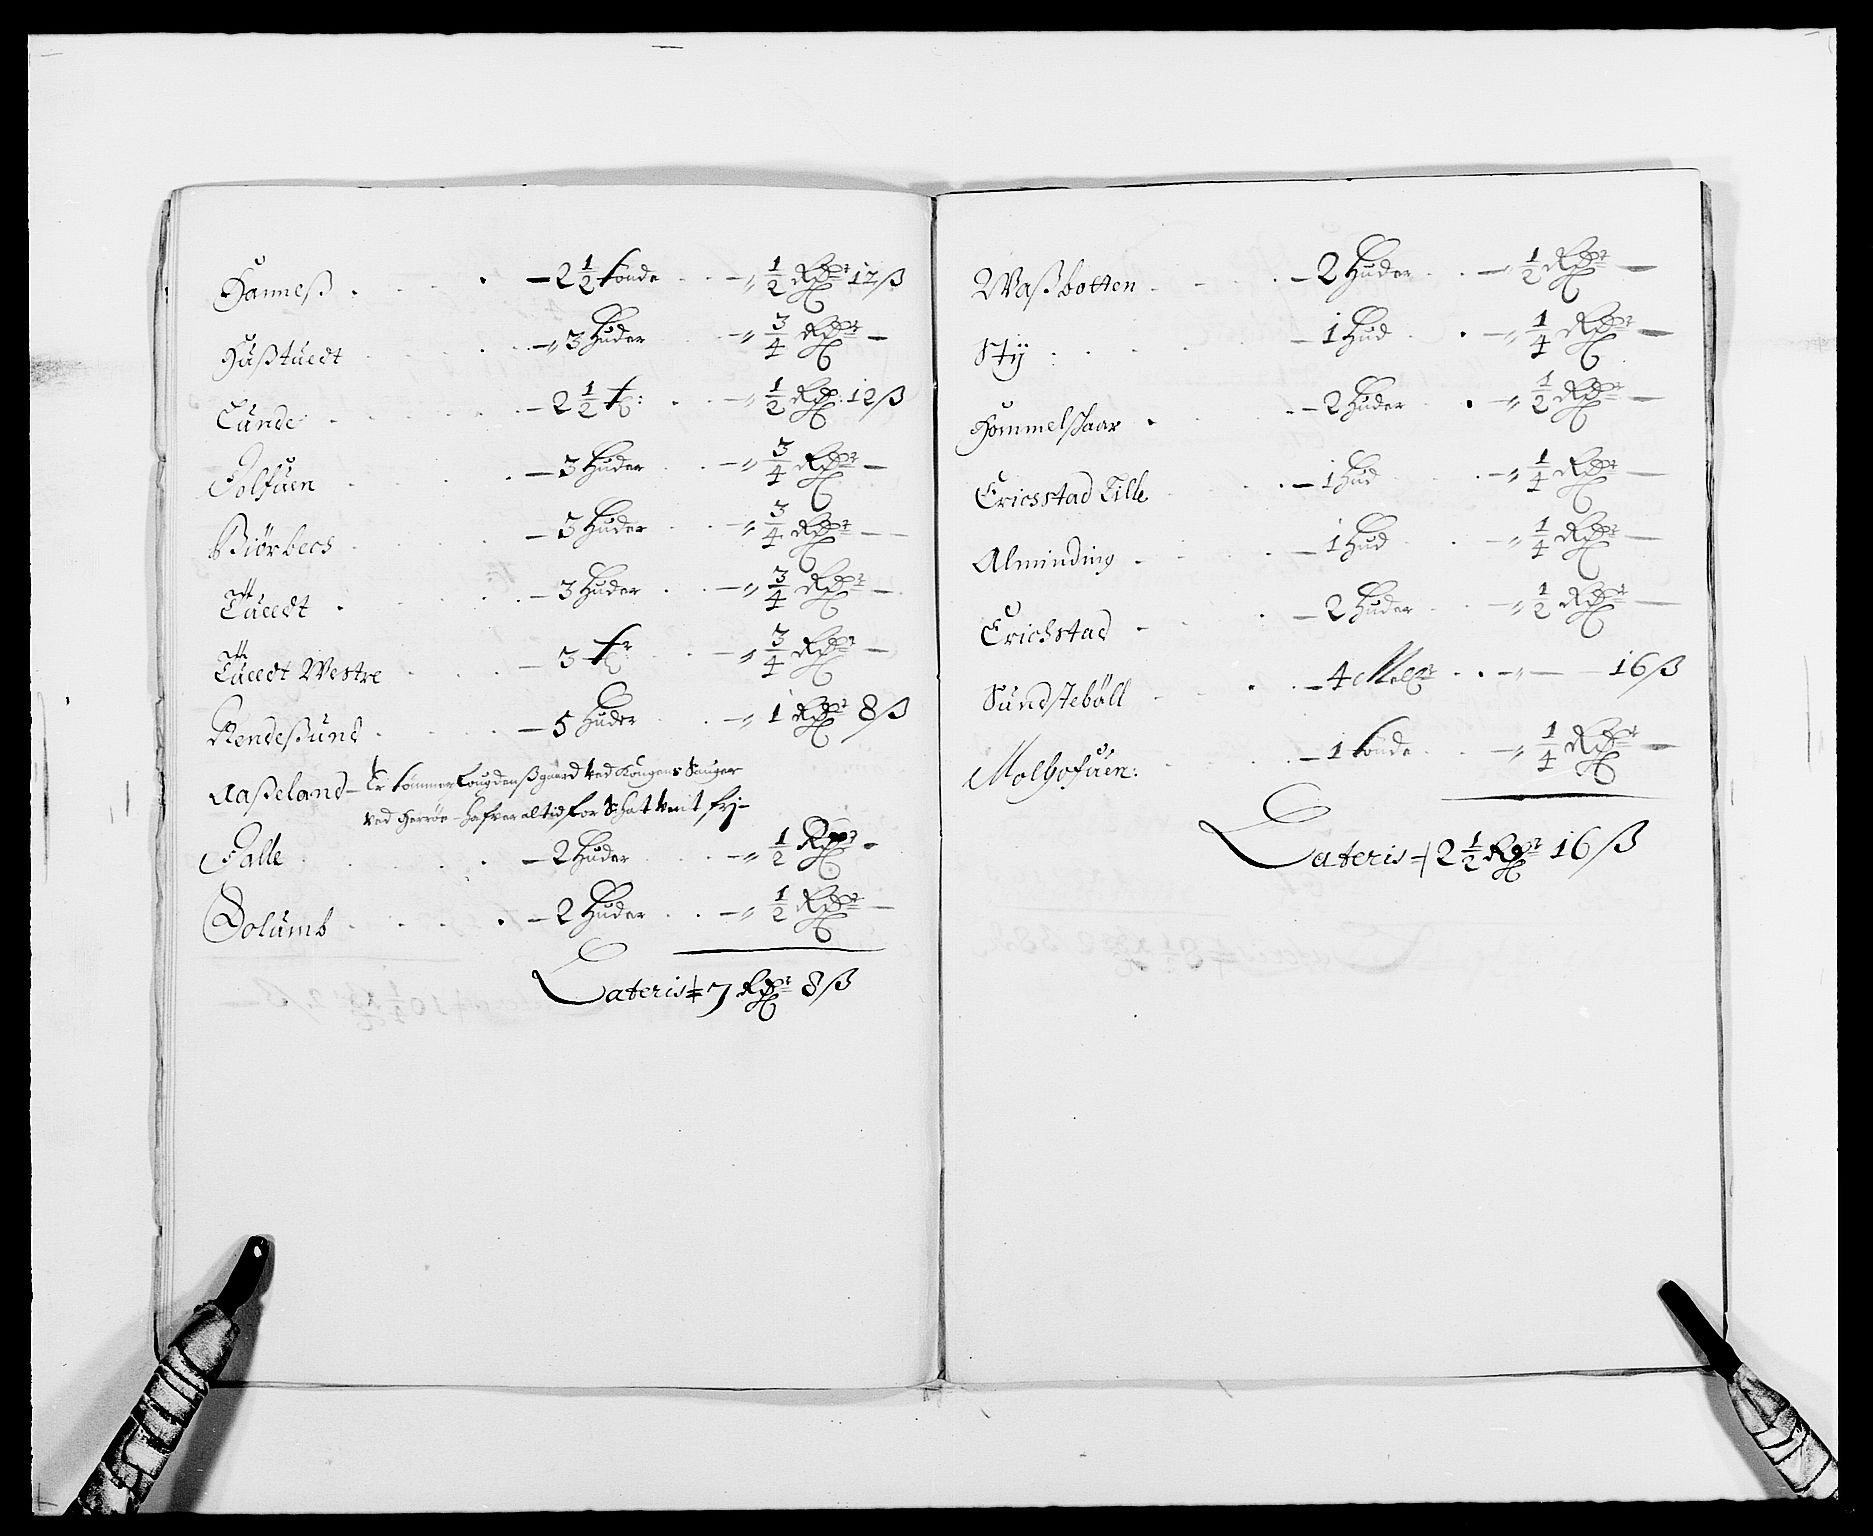 Hanneß — 2 1/2 tönde — 1/2 Rdr 12 ß
Hästuedt — 3 Huder — 3/4 Rdr —
Lunde — 2 1/2 t: — 1/2 Rdr: 12 ß
Folfuen — 3 Huder — 3/4 Rdr —
Biörbecs — 3 Huder — 3/4 Rdr —
Tuedt — 3 Huder — 3/4 Rdr —
Tuedt Westre — 3 tr — 3/4 Rdr —
Rendesund — 5 Huder — 1 Rdr 8 ß
Aaßeland — Er tömmer fougdens gaard ved Kongens Sauger
ved Herröe hafver altid for Schat verit frj —
Falle — 2 Huder — 1/2 Rdr —
Dolumb — 2 Huder — 1/2 Rdr —
Lateris 7 Rdr 8 ß
Waßbotten — 2 Huder — 1/2 Rdr —
Stÿ — 1 Hud — 1/4 Rdr —
Hommelsaar — 2 Huder — 1/2 Rdr —
Ericsstad Lille — 1 Hud — 1/4 Rdr —
Alminding — 1 Hud — 1/4 Rdr —
Erichstad — 2 Huder — 1/2 Rdr —
Sundsteböll — 4 Melr — 16 ß
Molhofuen: — 1 tönde — 1/4 Rdr —
Lateris 2 1/2 Rdr 16 ß